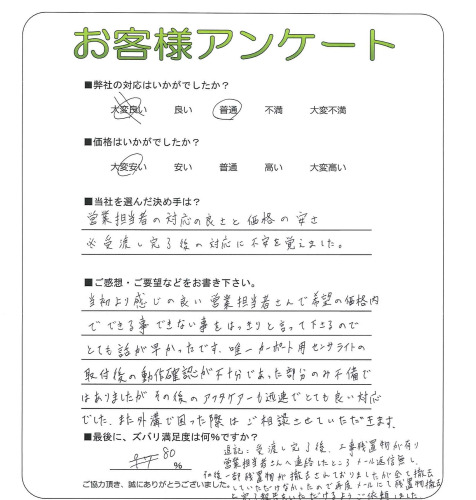 お客様アンケート
■弊社の対応はいかがでしたか?
大変良い 良い 普通 不満 大変不満
■価格はいかがでしたか?
大変安い 安い 普通 高い 大変高い
■当社を選んだ決め手は?
営業担当者の対応の良さと価格の安さ
※受渡し完了後の対応に不安を覚えました。
■ご感想・ご要望などをお書き下さい。
当初より感じの良い営業担当者さんで希望の価格内
でできる事できない事をはっきりと言って下さるので
とても話が早かったです。唯一カーポート用センサライトの
取付後の動作確認が不十分であった部分のみ不備で
はありましたがその後のアフタケアーも迅速でとても良い対応
でした。また外溝で困った際はご相談させていただきます。
■最後に、ズバリ満足度は何%ですか?
80
%
ご協力頂き、誠にありがとうございました。
追記:受渡し完了後、工事残置物が有り
営業担当者さんへ連絡したところメール返信無し、
後一部残置物が撤去されておりましたが全て撤去
していただけなかったので再度メールにて残置物撤去